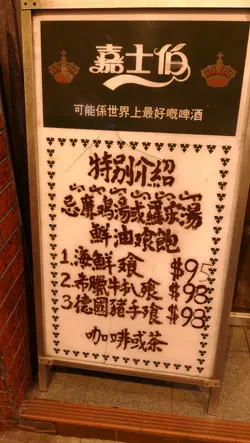 嘉士伯
可能係世界上最好嘅啤酒
特別介紹
忌廉鳴湯或羅宋湯
鮮油飡飽
1.海鮮飡 $95
2.希臘牛扒飡 $98
3.德國豬手飡 $98
咖啡或茶